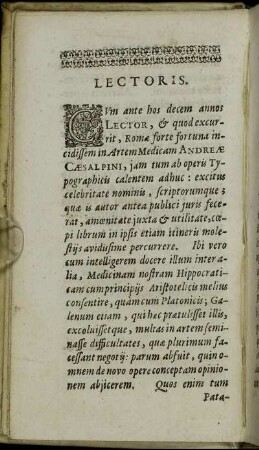 LECTORIS.
CVm ante hos decem annos
LECTOR, & quod excur-
rit, Romæ forte fortuna in-
cidissem in Artem Medicam ANDREÆ
CÆSALPINI, jam tum ab operis Ty-
pographicis calentem adhuc: excitus
celebritate nominis, scriptorumque;
quæ is autor antea publici juris fece-
rat, amœnitate juxta & utilitate, cœ-
pi librum in ipsis etiam itineris mole-
stijs avidissime percurrere. Ibi vero
cum intelligerem docere illum inter a-
lia, Medicinam nostram Hippocrati-
cam cum principijs Aristotelicis melius
consentire, quàm cum Platonicis; Ga-
lenum etiam, qui hæc pratulisset illis,
excoluissetque, multas in artem semi-
nasse difficultates, quæ plurimum fa-
cessant negotij: parum abfuit, quin o-
mnem de novo opere conceptam opinio-
nem abjicerem. Quos enim tum
Pata-